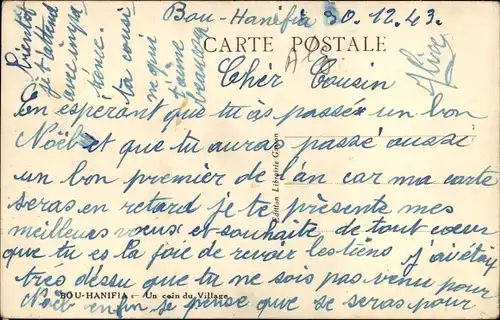 Bou-Hanifia 30.12.43.
CARTE POSTALE
Cher Cousin
En esperant que tu as passée un bon
Noël et que tu auras passé ausse
un bon premier de l'an car ma carte
seras en retard je te présente mes
meilleurs voeux et souhaite de tout coeur
que tu es la joie de revoir les tiens j'ai étay
tres dessu que tu ne sois pas venu pour
Noël enfin je pense que se seras pour
bientôt
je t'attend
avec impa
tience.
ta cousi
ne qui
t'aime
beaucoup
Edition Librairie
BOU-HANIFIA - Un coin du Village